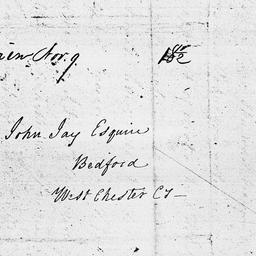 Nov. 9
John Jay Esquire
Bedford
West Chester Cy—